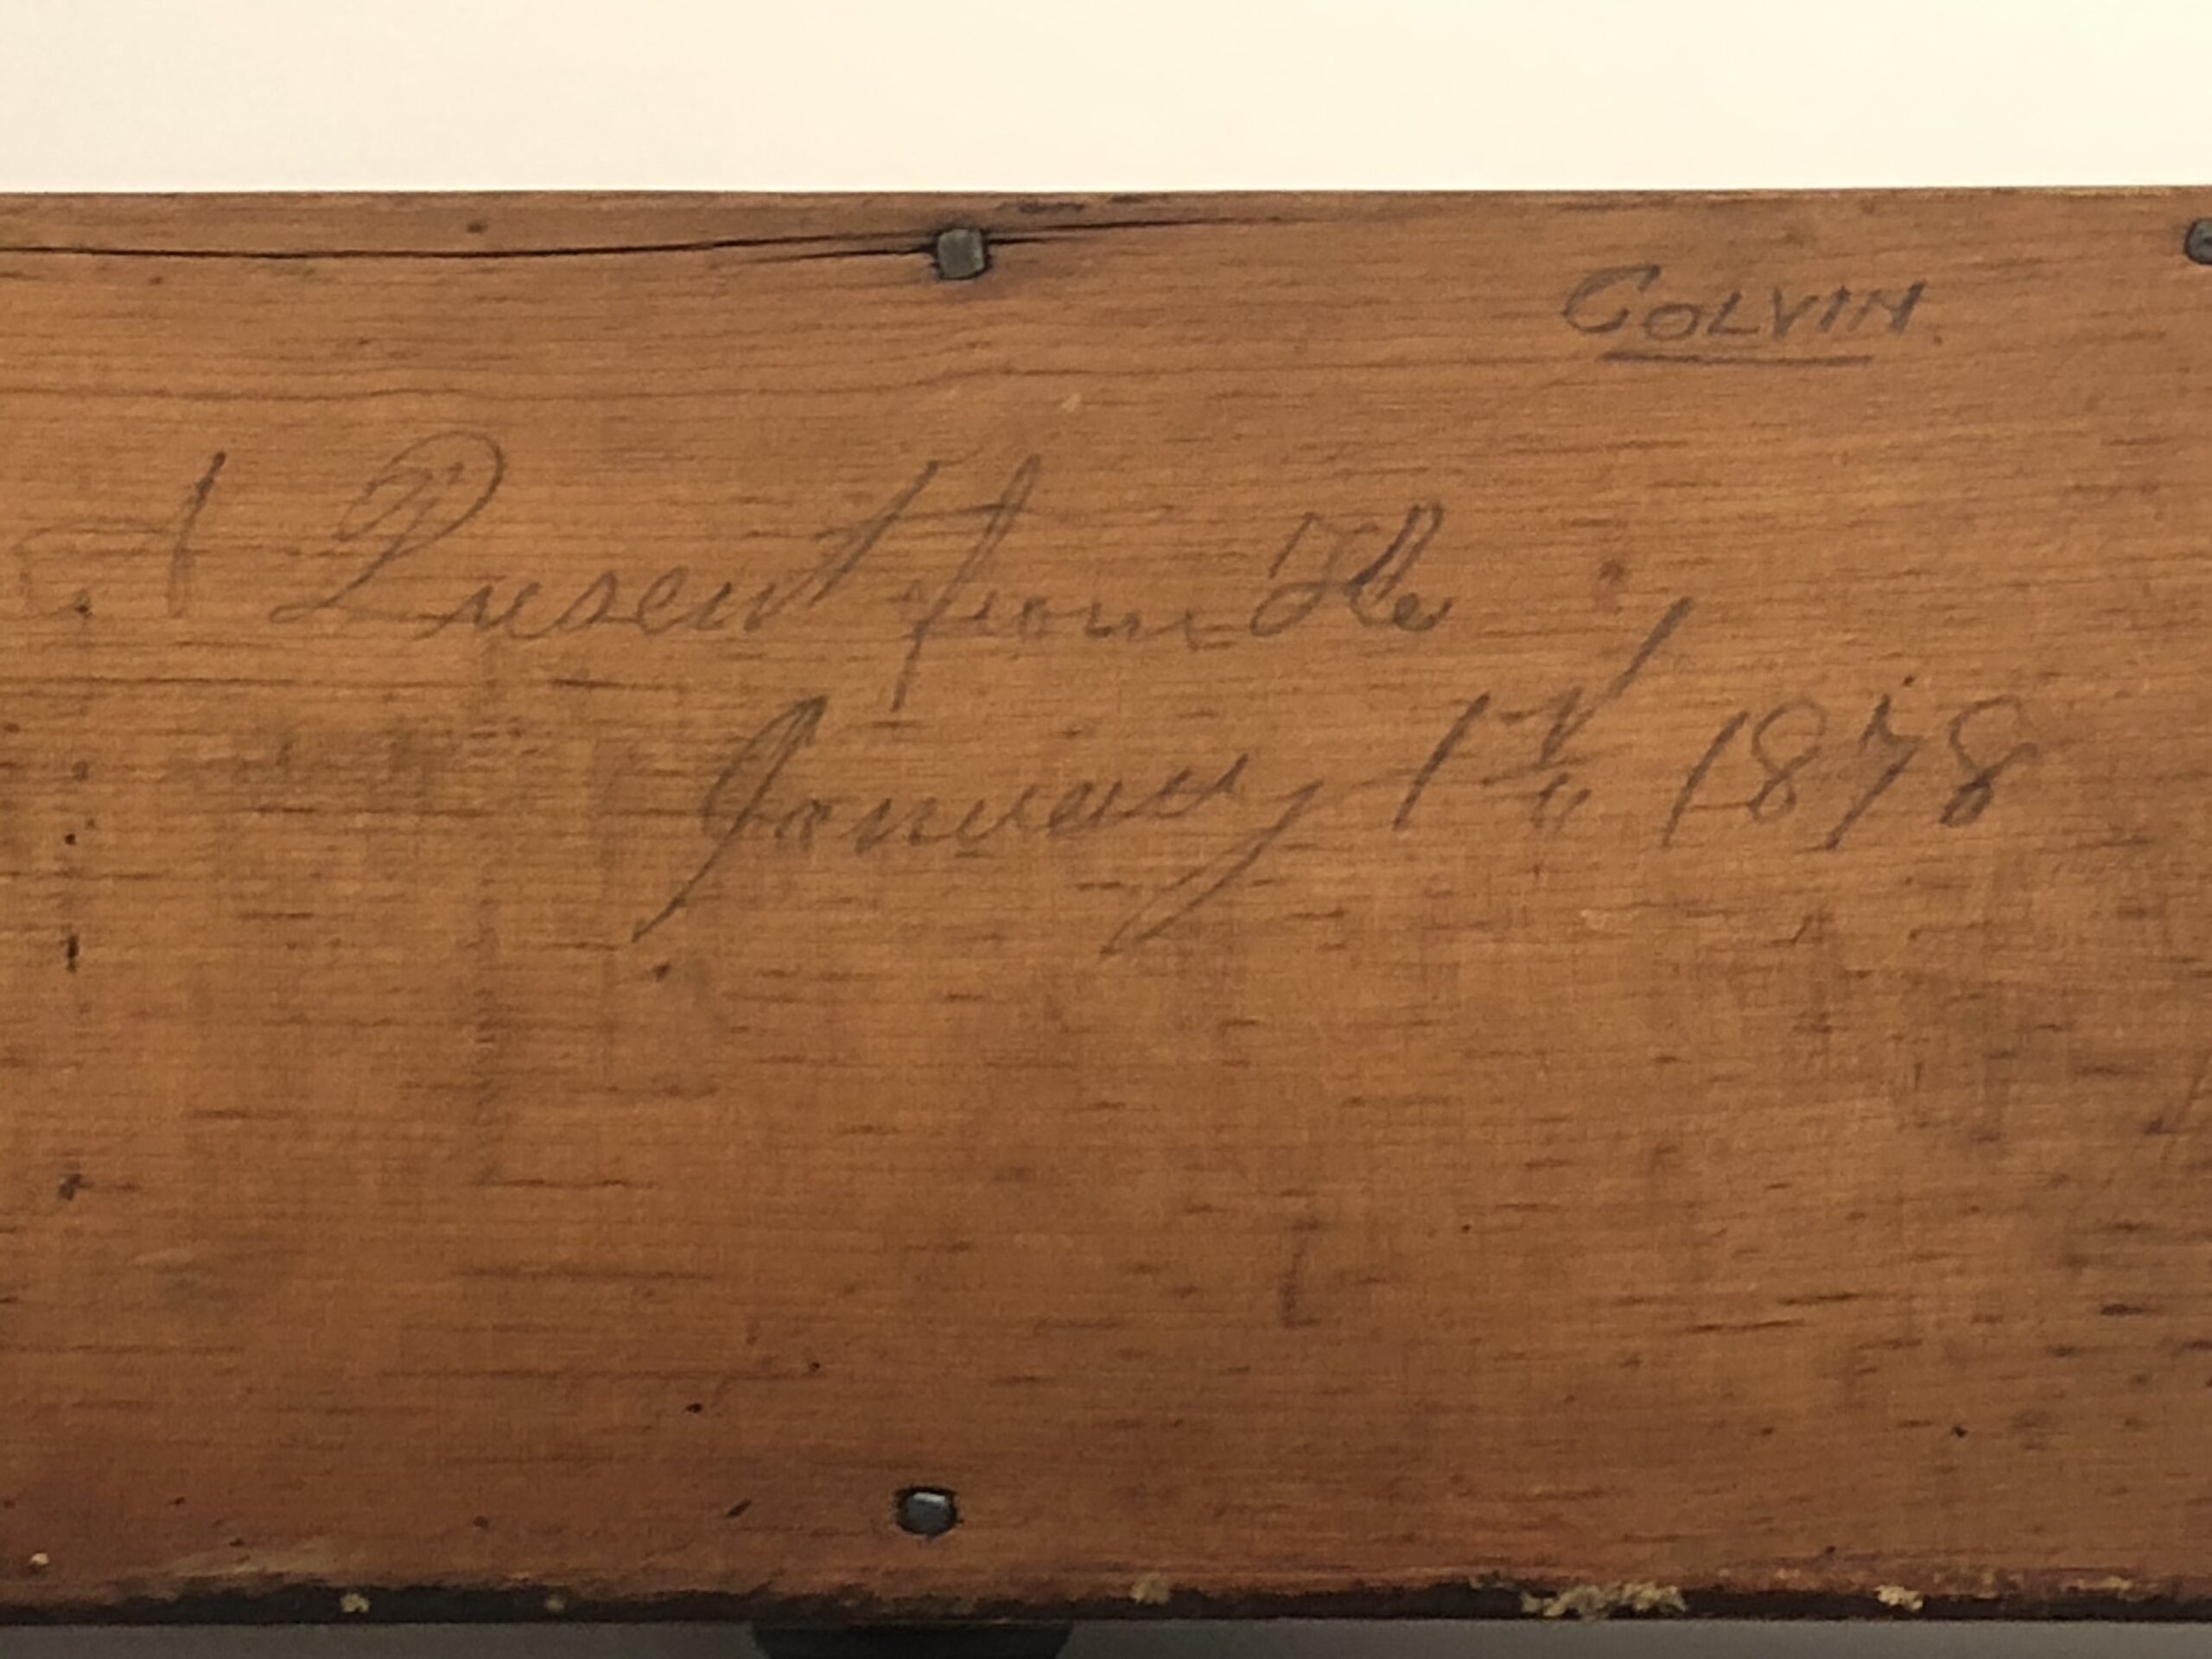 COLVIN
A Present from the
January 1st 1878